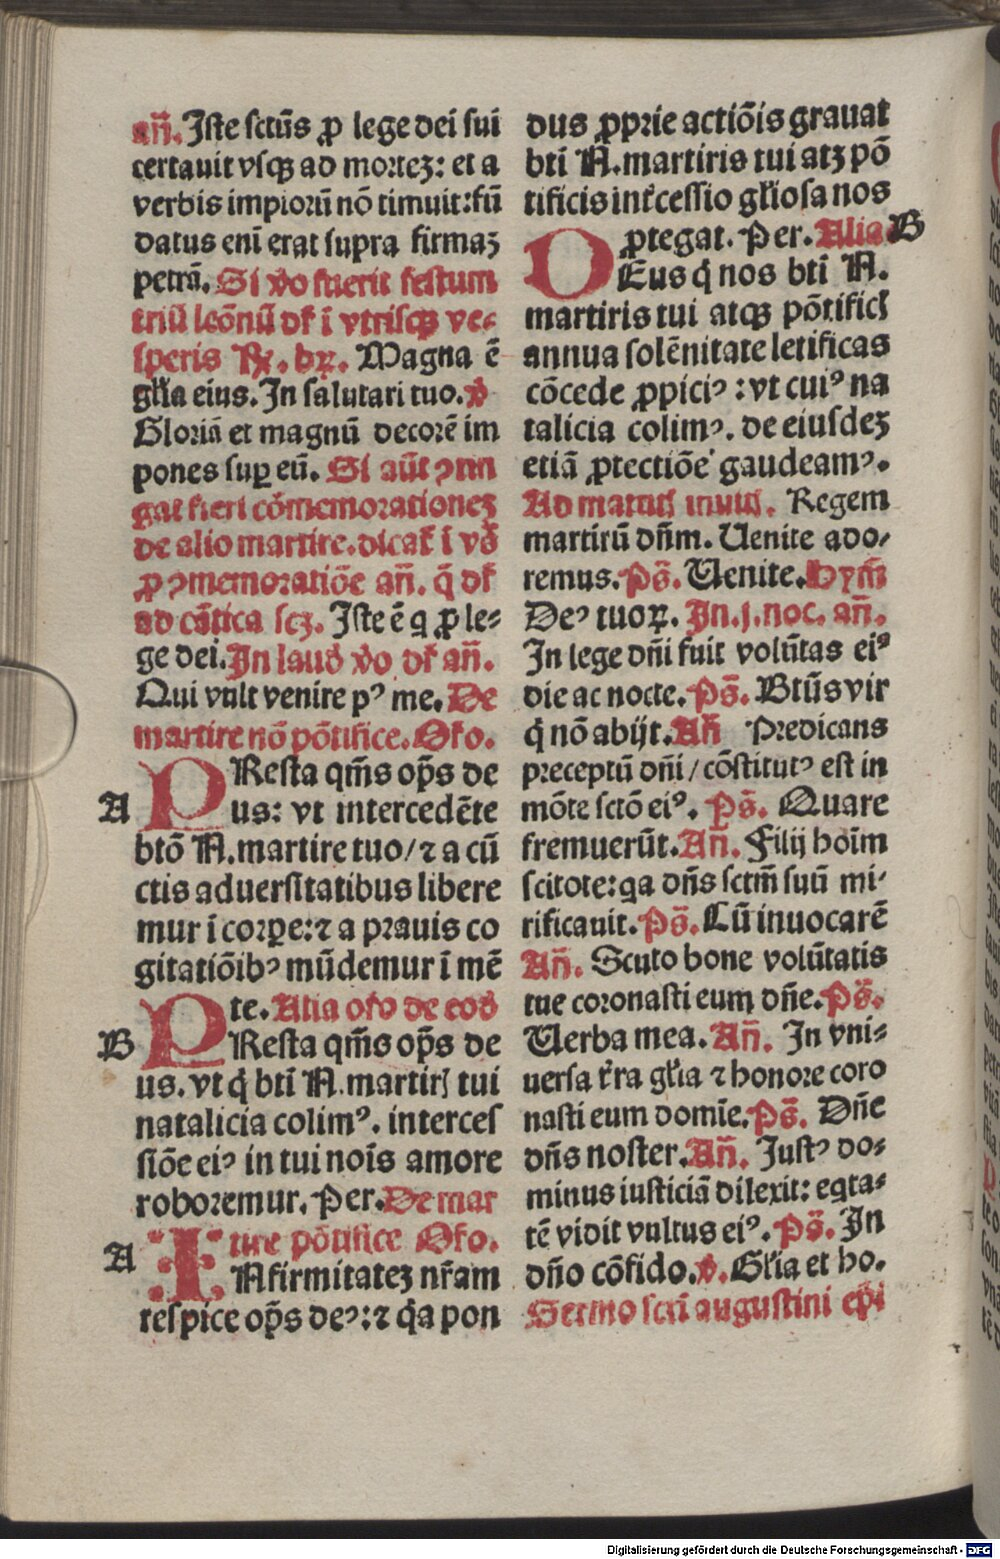 an̄. Iste sctūs ꝓ lege dei sui
certauit vsqꝫ ad morteꝫ: et a
verbis impiorū nō timuit: fū
datus enī erat supra firmaꝫ
petrā. Si ꝟo fuerit festum
triū lcōnū dr̄ ī vtrisqꝫ ve⸗
speris Rꝭ. bꝛ. Magna ē
gl̄ia eius. In salutari tuo. ꝟ
Gloriā et magnū decorē im
pones suꝑ eū. Si aūt ꝯtin
gat fieri cōmemorationeꝫ
de alio martire. dicat̄ ī vꝭ
ꝓ ꝯmemoratiōe an̄. q̄ dr̄
ad cātica scꝫ. Iste ē q ꝓ le⸗
ge dei. In laud ꝟo dr̄ an̄.
Qui vult venire pꝰ me. De
martire nō pōtifice. Oro.
A
PResta qm̄s op̄s de
us: vt intercedēte
btō N. martire tuo/ ⁊ a cū
ctis aduersitatibus libere
mur ī corꝑe: ⁊ a prauis co
gitatiōibꝰ mūdemur ī mē
te. Alia oro de eod
B
PResta qm̄s op̄s de
us. vt q̄ btī N. martirꝭ tui
natalicia colimꝰ. interces
siōe eiꝰ in tui noīs amore
roboremur. Per. De mar
tire pōtifice Oro.
A
INfirmitateꝫ nr̄am
respice op̄s deꝰ: ⁊ q̄a pon
dus ꝓprie actiōis grauat
btī N. martiris tui atqꝫ pō
tificis int̄cessio gl̄iosa nos
ꝓtegat. Per. Alia B
DEus q̄ nos btī N.
martiris tui atqꝫ pōtificꝭ
annua solēnitate letificas
cōcede ꝓpiciꝰ: vt cuiꝰ na
talicia colimꝰ. de eiusdeꝫ
etiā ꝓtectiōe gaudeamꝰ.
Ad matutꝭ inuitꝭ. Regem
martirū dn̄m. Uenite ado⸗
remus. Ps̄. Uenite. hym̄
Deꝰ tuoꝝ. In .j. noc. an̄.
In lege dn̄i fuit volūtas eiꝰ
die ac nocte. Ps̄. Btūs vir
q̄ nō abijt. An̄ Predicans
preceptū dn̄i/ cōstitutꝰ est in
mōte sctō eiꝰ. Ps̄. Quare
fremuerūt. An̄. Filij hoīm
scitote: qa dn̄s sctm̄ suū mi⸗
rificauit. Ps̄. Cū inuocarē
An̄. Scuto bone volūtatis
tue coronasti eum dn̄e. Ps̄.
Uerba mea. An̄. In vni⸗
uersa t̄ra gl̄ia ⁊ honore coro
nasti eum domīe. Ps̄. Dn̄e
dn̄s noster. An̄. Justꝰ do⸗
minus iusticiā dilexit: eqta⸗
tē vidit vultus eiꝰ. Ps̄. In
dn̄o cōfido. ꝟ. Gl̄ia et ho.
Sermo scti augustini ep̄i
Digitalisierung gefördert durch die Deutsche Forschungsgemeinschaft - DFG